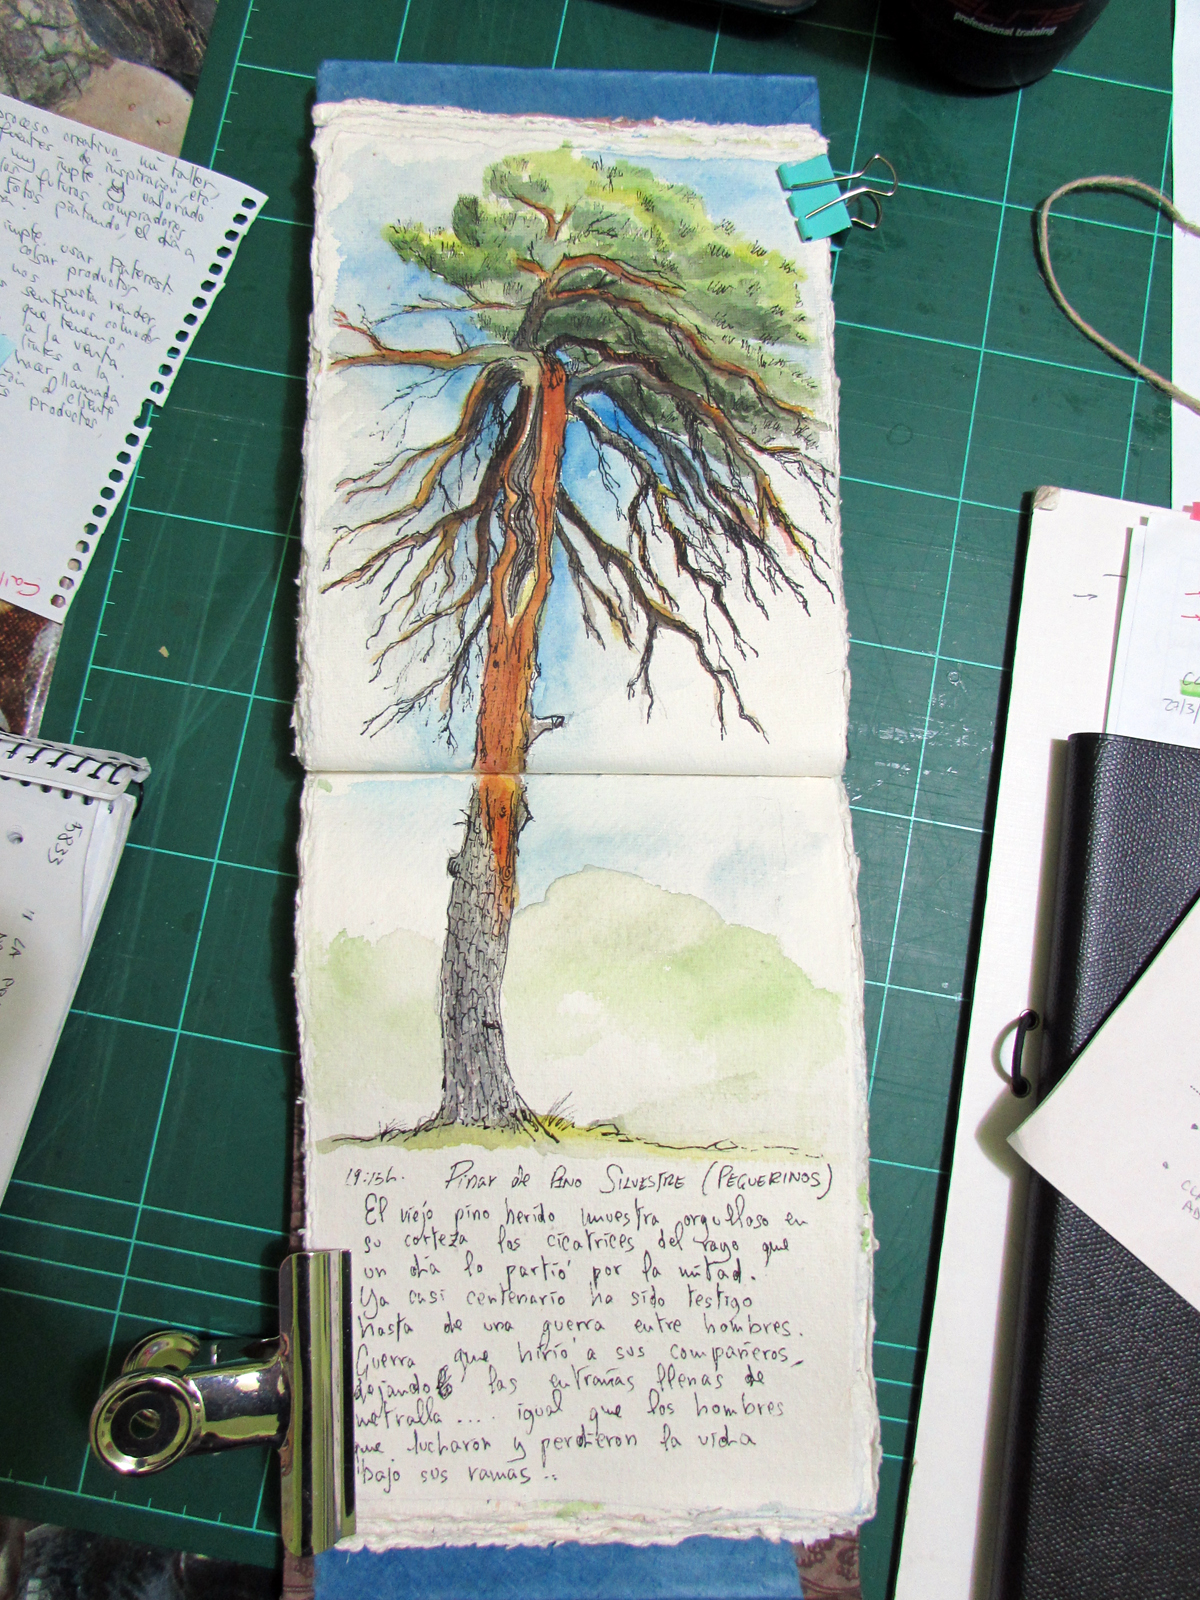 professional training
proceso creativo, mi taller,
fuentes de inspiración, etc.
muy impte y valorado
futuros compradores
Fotos pintando, el día a
impte. usar Pinterest
colgar productos
nos gusta vender
sentimos cómodos
que tenemos
a la venta.
hacer llamada
al cliente
productos
5833
27/3/
19:15h. Pinar de Pino Silvestre (PEGUERINOS)
El viejo pino herido muestra orgulloso en
su corteza las cicatrices del rayo que
un día lo partió por la mitad.
Ya casi centenario ha sido testigo
hasta de una guerra entre hombres.
Guerra que hirió a sus compañeros,
dejando las entrañas llenas de
metralla .... igual que los hombres
que lucharon y perdieron la vida
bajo sus ramas ..